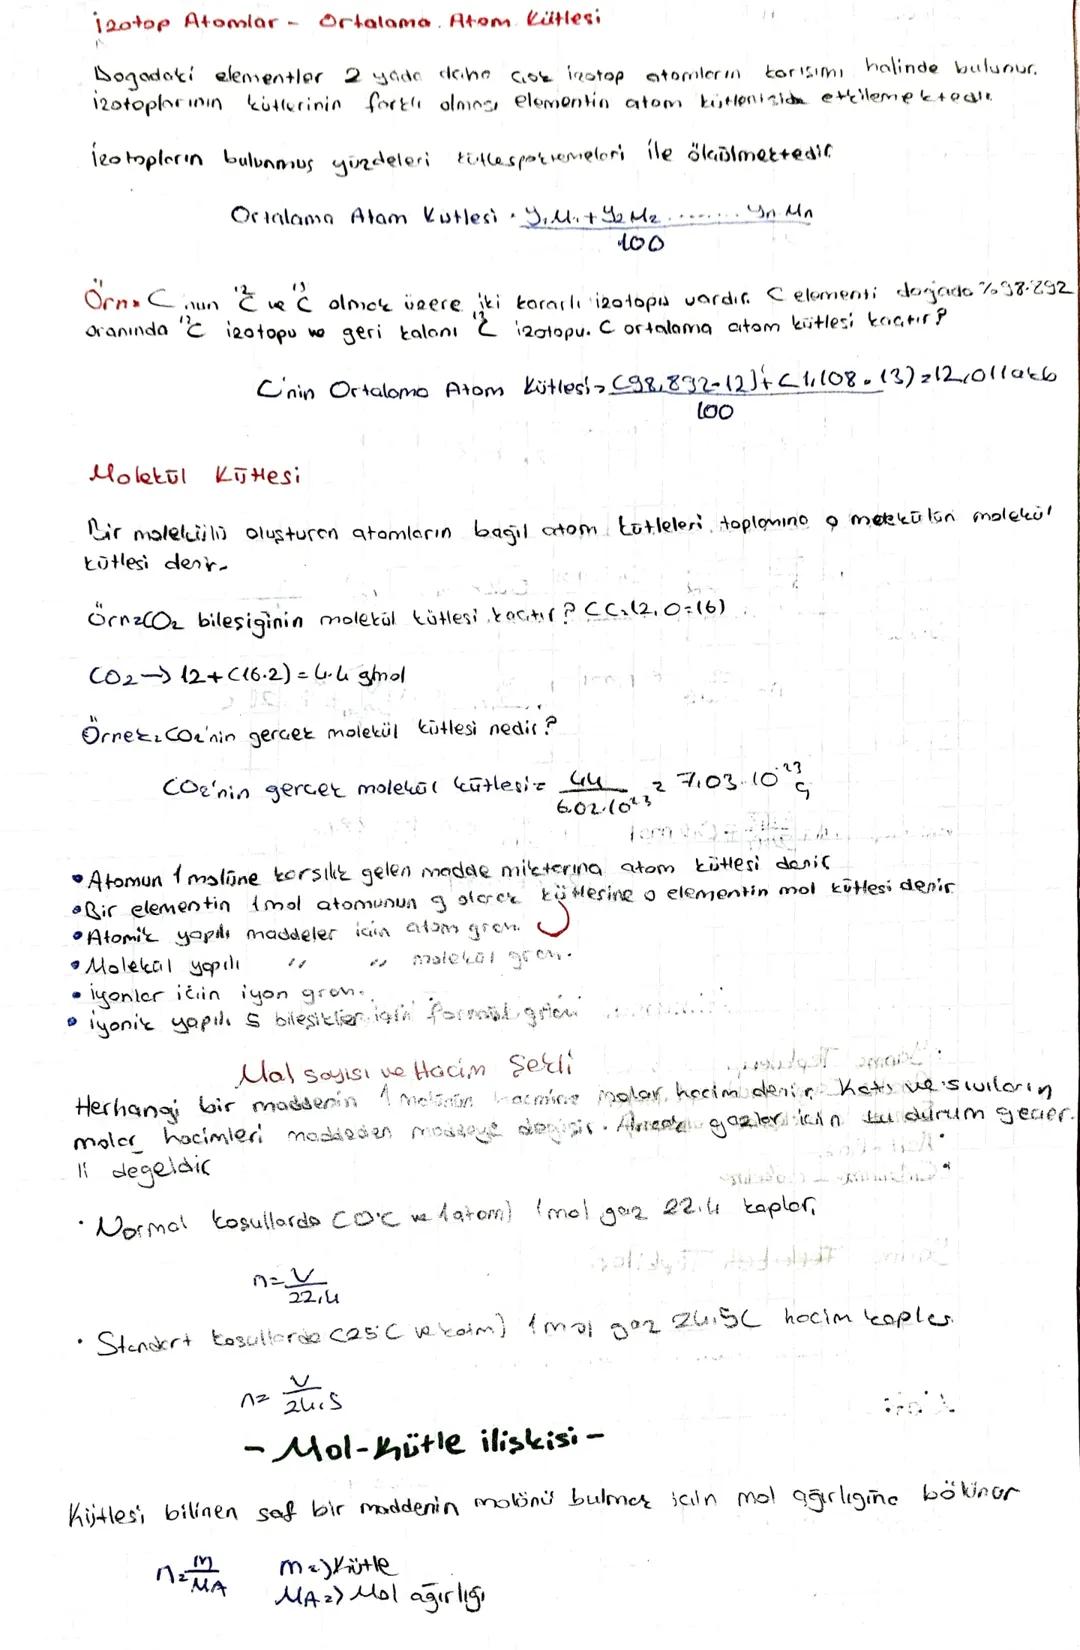 İzotop Atomlar - Ortalama Atom Kütlesi
Dogadaki elementler 2 yada daha çok izotop atomların karısımı halinde bulunur.
izotoplarının kütlerinin farklı olması elementin atom kütlesinide etkilemektedir.
İzotopların bulunmuş yüzdeleri kütlespektremeleri ile ölçülmektedir
Ortalama Atam Kutlesi = y₁M₁+y₂M₂........yn.Mn
100
Örn= C nun ¹²C ve ¹³C olmak üzere iki kararlı izotopu vardır. C elementi doğada %98.892
oranında ¹²C izotopu ve geri kalanı ¹³C izotopu. C ortalama atom kütlesi kaçtır?
C'nin Ortalama Atom Kütlesi= (98,892.12)+(1,108.13)=12,011akb
100
Molekül Kütlesi
Bir molekülü oluşturan atomların bağıl atom kütleleri toplamına o molekülün molekül
kütlesi denir.
Örn=CO₂ bileşiğinin molekül kütlesi kaçtır? (C=12, O=16)
CO₂→ 12+(16.2)=44 g/mol
Örnek=CO₂'nin gercek molekül kütlesi nedir?
CO₂'nin gercek molekül kütlesi= 44 = 7,03.10⁻²³ g
6.02.10²³
• Atomun 1 molüne karsılık gelen madde miktarına atom kütlesi denir
• Bir elementin 1mol atomunun g olarak kütlesine o elementin mol kütlesi denir
• Atomik yapılı maddeler için atom gram
• Molekül yapılı " " molekül gram.
• iyonlar için iyon gram.
• iyonik yapılı bileşikler için formül gram
Mol sayısı ve Hacim Şekli
Herhangi bir maddenin 1 molünün hacmine molar hacim denir. Katı ve sıvıların
molar hacimleri maddeden maddeye değişir. Ancak gazlar için bu durum gecer.
li degeldir
• Normal kosullarda (0°C ve 1atom) 1mol gaz 22.4 kaplar,
n= V
22,4
• Standart kosullarda (25°C ve 1atm) 1mol gaz 24.5L hacim kaplar.
n= V
24,5
- Mol-Kütle ilişkisi -
Kütlesi bilinen saf bir maddenin molünü bulmak için mol ağırlığına bökünür
n= m m=)Kütle
MA MA=) Mol ağırlığı